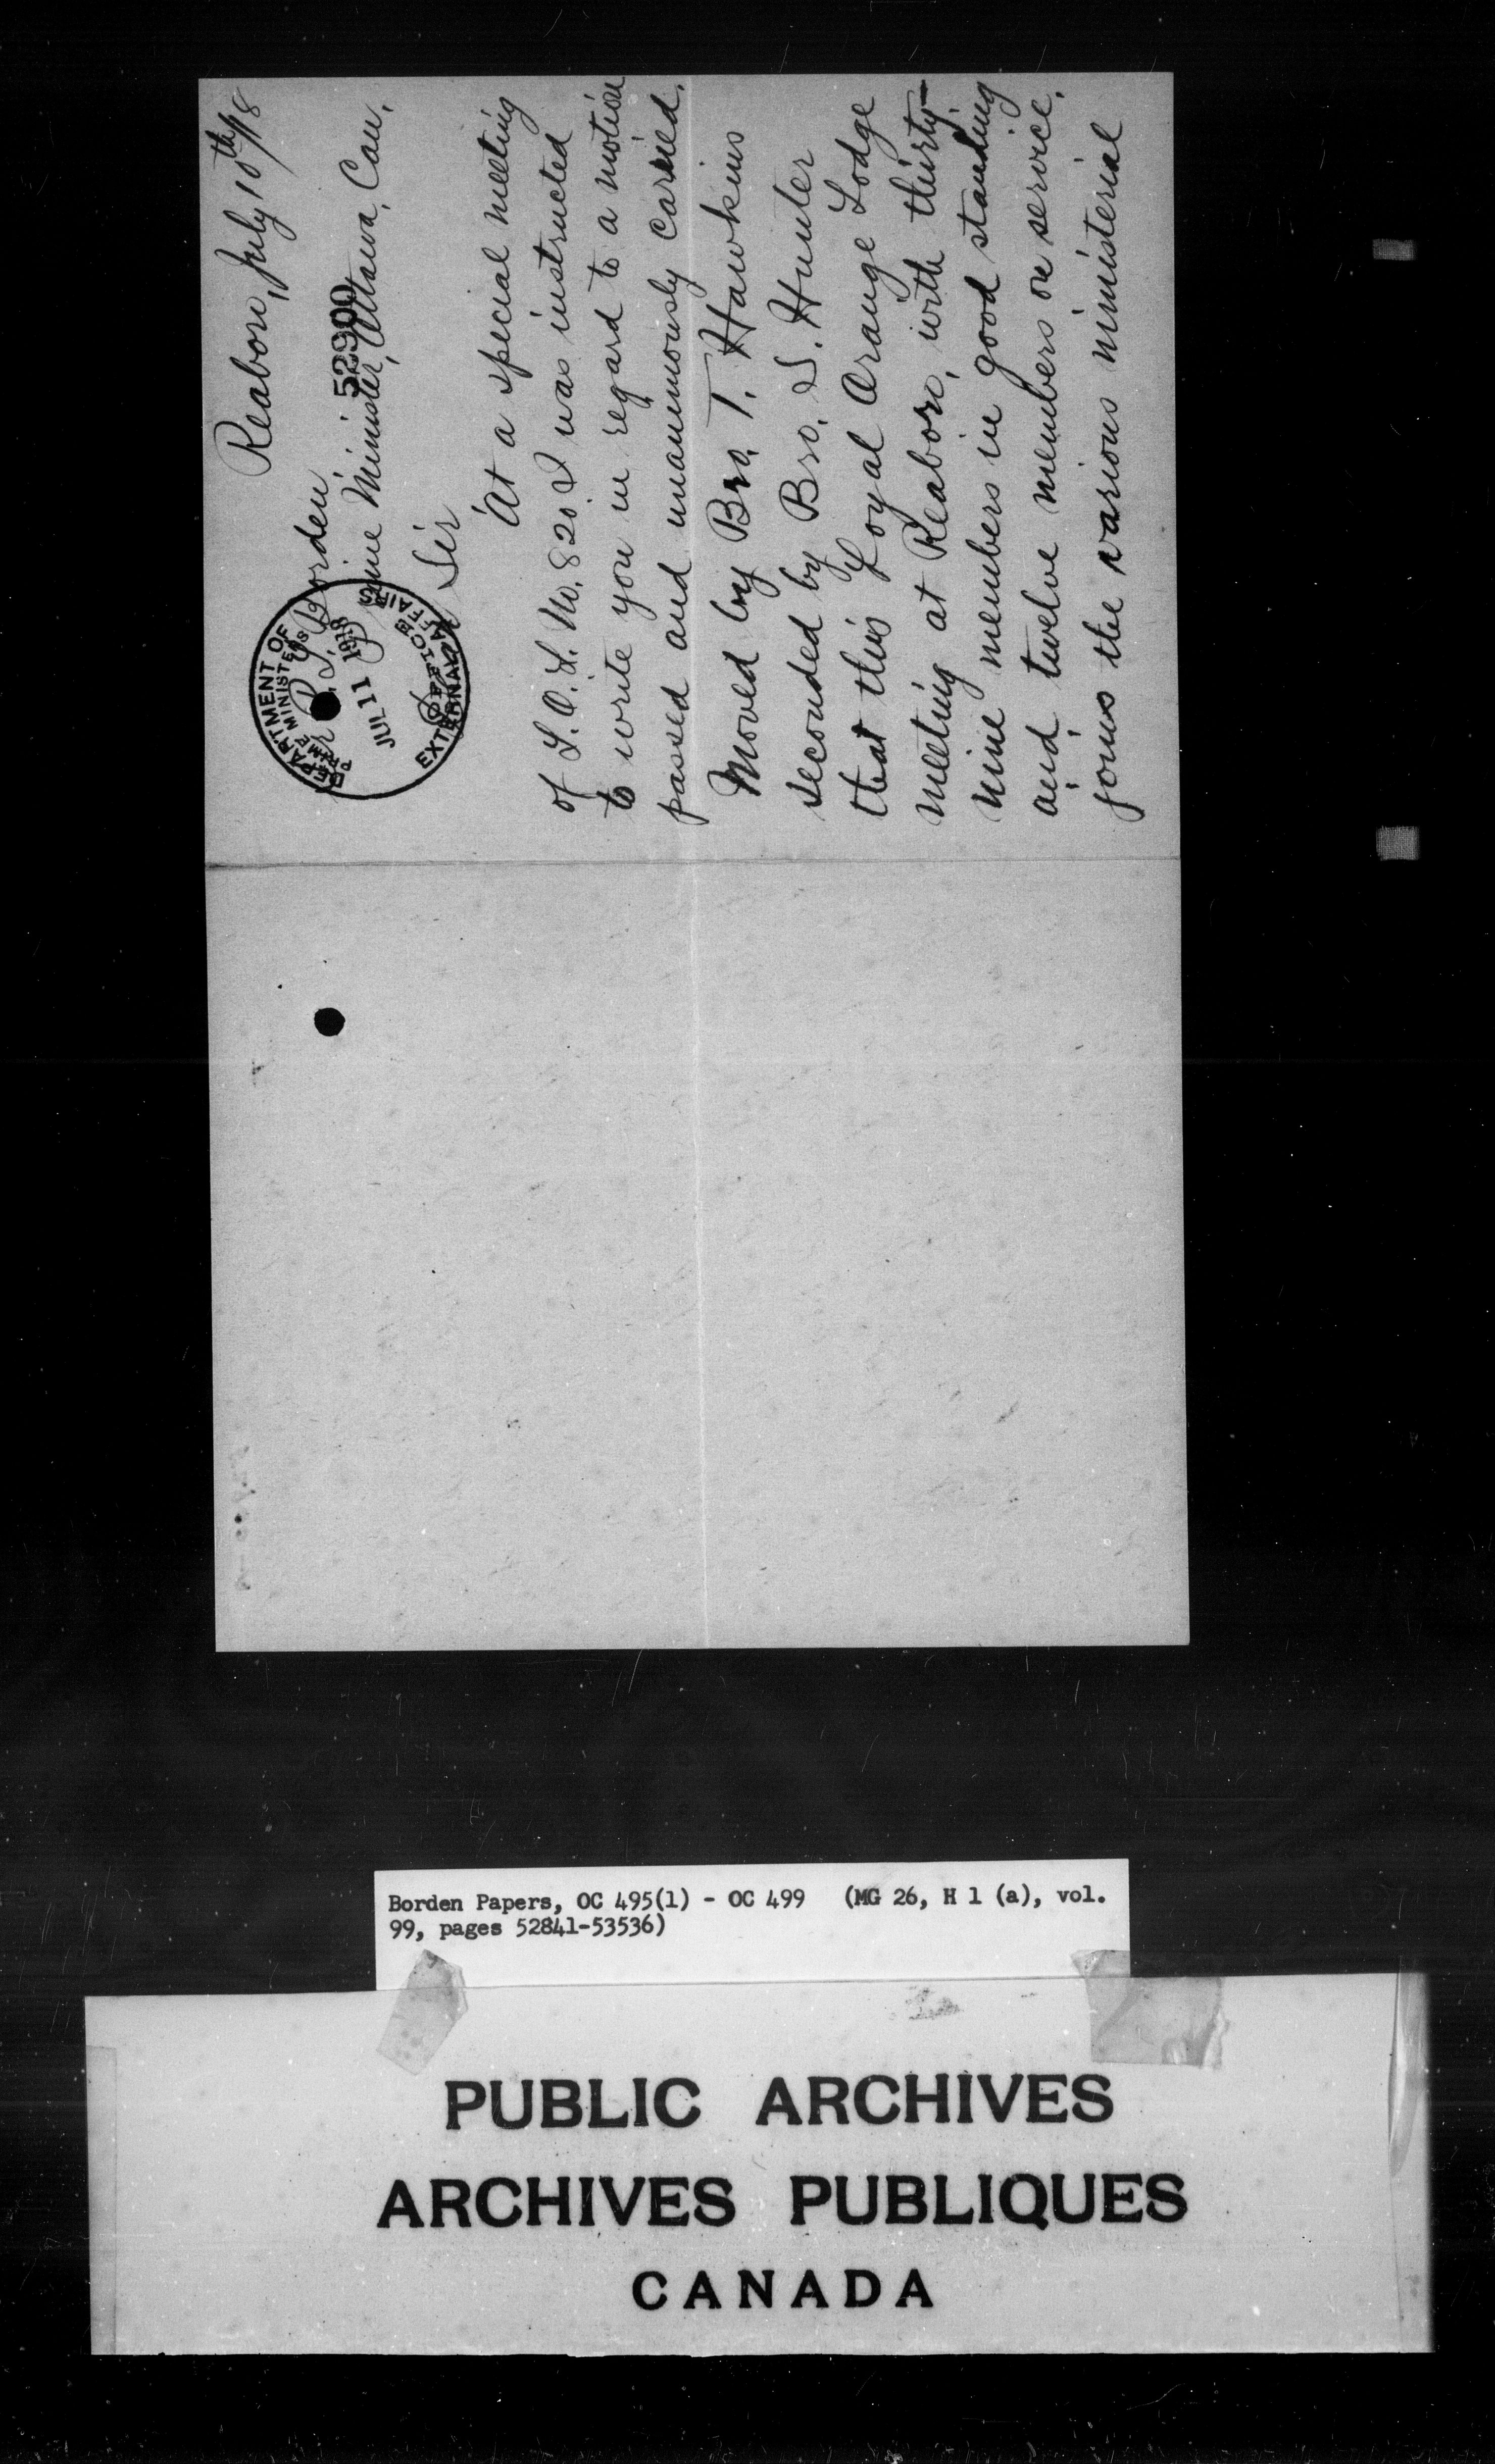 Reaboro, July 10th/18
Sir R. L. Borden,
52900
Prime Minister, Ottawa, Can.
Dear Sir
DEPARTMENT OF EXTERNAL AFFAIRS
PRIME MINISTERS OFFICE
JUL 11 1918
At a special meeting
of L. O. L. No. 820. I was instructed
to write you in regard to a motion
passed and unanimously carried.
Moved by Bro. T. Hawkins
seconded by Bro. S. Hunter
that this Loyal Orange Lodge
meeting at Reaboro, with thirty-
nine members in good standing
and twelve members on service,
joins the various ministerial
Borden Papers, OC 495(1) - OC 499 (MG 26, H 1 (a), vol.
99, pages 52841-53536)
PUBLIC ARCHIVES
ARCHIVES PUBLIQUES
CANADA